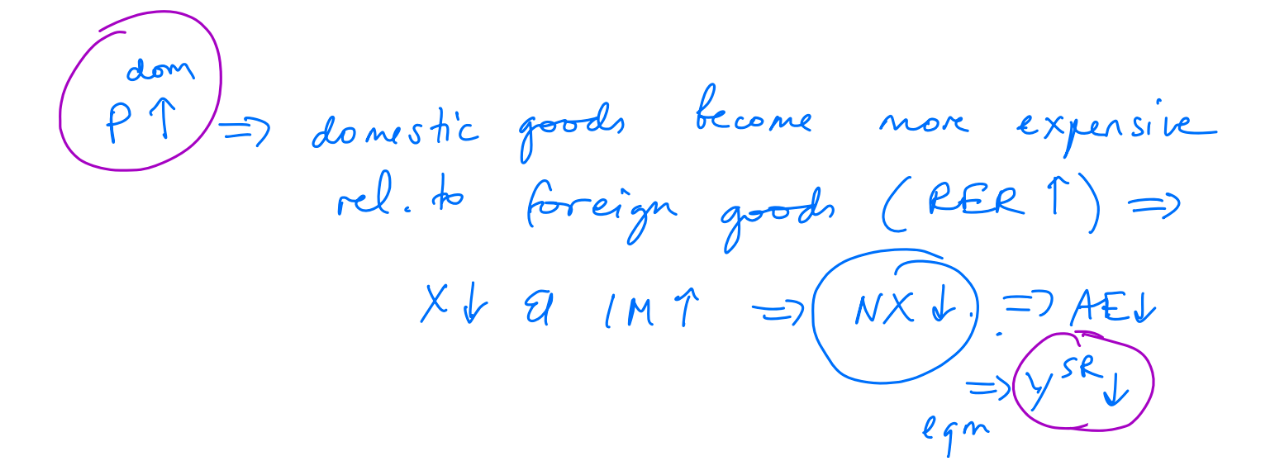 P^dom ↑ => domestic goods become more expensive
rel. to foreign goods (RER ↑) =>
X↓ & IM↑ => NX↓. => AE↓
=> Y^SR ↓
eqm